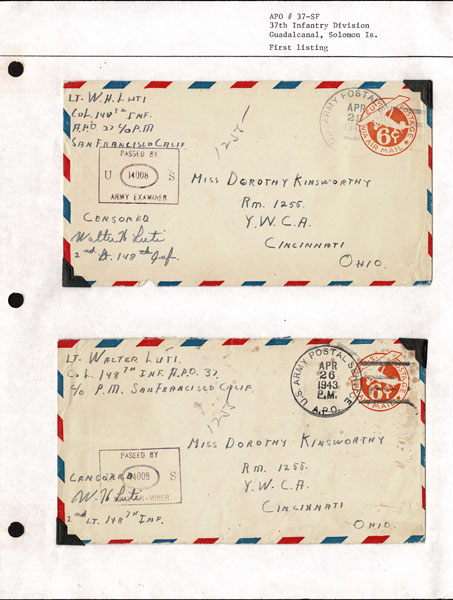 APO # 37-SF
37th Infantry Division
Guadalcanal, Solomon Is.
First listing
LT. W.H. LUTI
CO L. 148TH INF.
A.P.O 37 C/O P.M
SAN FRANCISCO CALIF.
PASSED BY
U 14008 S
ARMY EXAMINER
CENSORED
Walter H Luti
2nd Lt. 148th Inf.
1255
U.S. ARMY POSTAL
APR
1943
U.S. POSTAGE
6¢
VIA AIR MAIL
MISS DOROTHY KINSWORTHY
RM. 1255.
Y.W.C.A.
CINCINNATI
OHIO.
LT. WALTER LUTI.
CO L. 148TH INF. A.P.O. 37.
C/O P.M. SAN FRANCISCO CALIF.
1255
PASSED BY
14008 S
EXAMINER
CENSORED
W. H Luti
2nd LT. 148TH INF.
U.S. ARMY POSTAL SERVICE
APR
26
1943
P.M.
A.P.O.
POSTAGE
6¢
AIR MAIL
MISS DOROTHY KINSWORTHY
RM. 1255.
Y.W.C.A.
CINCINNATI
OHIO.